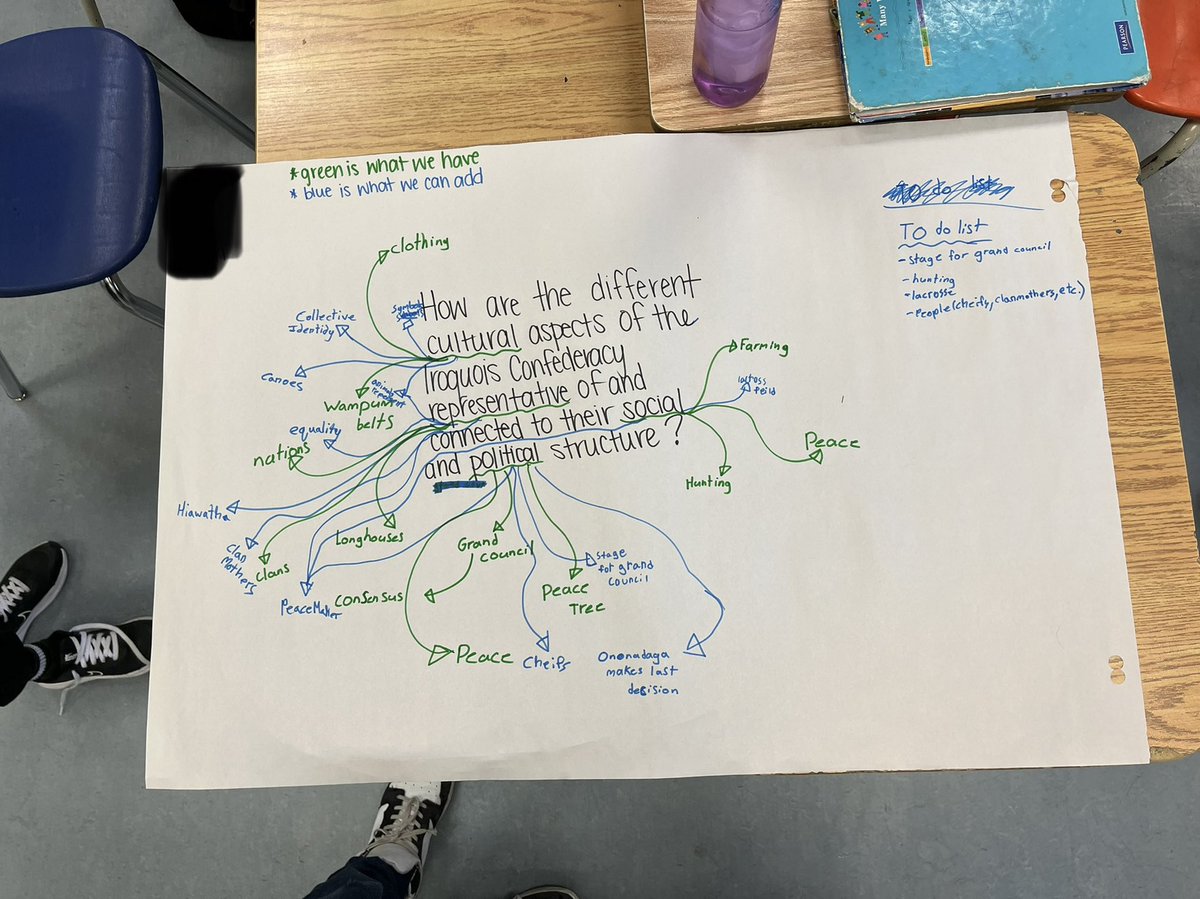 Many
PEARSON
*green is what we have
* blue is what we can add
To do list
TO do list
-stage for grand council
-hunting
-lacrosse
-People(cheifs, clanmothers, etc.)
clothing
Collective
Identidy
canoes
Wampum
belts
equality
nations
Hiawatha
Clan
Mothers
clans
PeaceMaker
Longhouses
How are the different
cultural aspects of the
Iroquois Confederacy
representative of and
connected to their social
and political structure?
Farming
feild
Peace
Hunting
Grand
council
consensus
Peace
Peace
Tree
stage
for grand
council
Cheifs
Ononadaga
makes last
decision